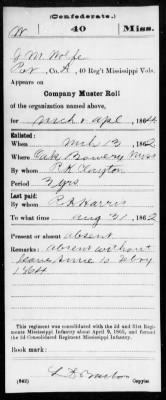 (Confederate.)
W 40 Miss.
J. M. Wolfe
Pvt, Co. A, 40 Reg't Mississippi Vols.
Appears on
Company Muster Roll
of the organization named above,
for Mch & Apl, 1864.
Enlisted:
When Mch 13, 1862
Where Oak Bowery Miss
By whom P. H. Clayton
Period 3 yrs
Last paid:
By whom P. A. Harris
To what time Aug 31, 1862
Present or absent absent
Remarks: absent without
leave since 15 Nov
1864
This regiment was consolidated with the 3d and 31st Regiments
Mississippi Infantry about April 9, 1865, and formed
the 3d Consolidated Regiment Mississippi Infantry.
Book mark:
(642)
Copyist.